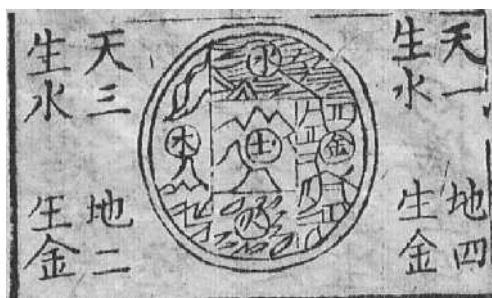 天一
生水
地四
生金
水
金
土
天三
生水
地二
生金